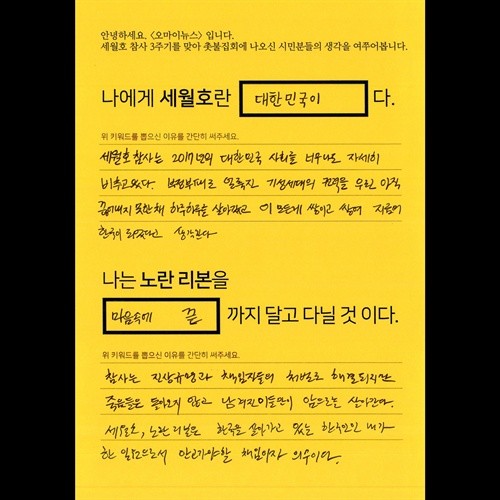 안녕하세요. <오마이뉴스> 입니다.
세월호 참사 3주기를 맞아 촛불집회에 나오신 시민분들의 생각을 여쭈어봅니다.
나에게 세월호란 대한민국이 다.
위 키워드를 뽑으신 이유를 간단히 써주세요.
세월호 참사는 2017년의 대한민국 사회를 너무나도 자세히
비추고있다. 부정부패로 얼룩진 기성세대의 권력을 우린 아직
끊어내지 못한채 하루하루를 살아왔고 이 모든게 쌓이고 쌓여 지금의
한국이 되었다고 생각한다
나는 노란 리본을
마음속에 끝 까지 달고 다닐 것 이다.
위 키워드를 뽑으신 이유를 간단히 써주세요.
참사는 진상규명과 책임자들의 처벌로 해결되지만
죽음들은 돌아오지 않고 남겨진이들만이 앞으로를 살아간다.
세월호, 노란리본은 한국을 살아가고 있는 한국인인 내가
한 일원으로서 안고가야할 책임이자 의무이다.